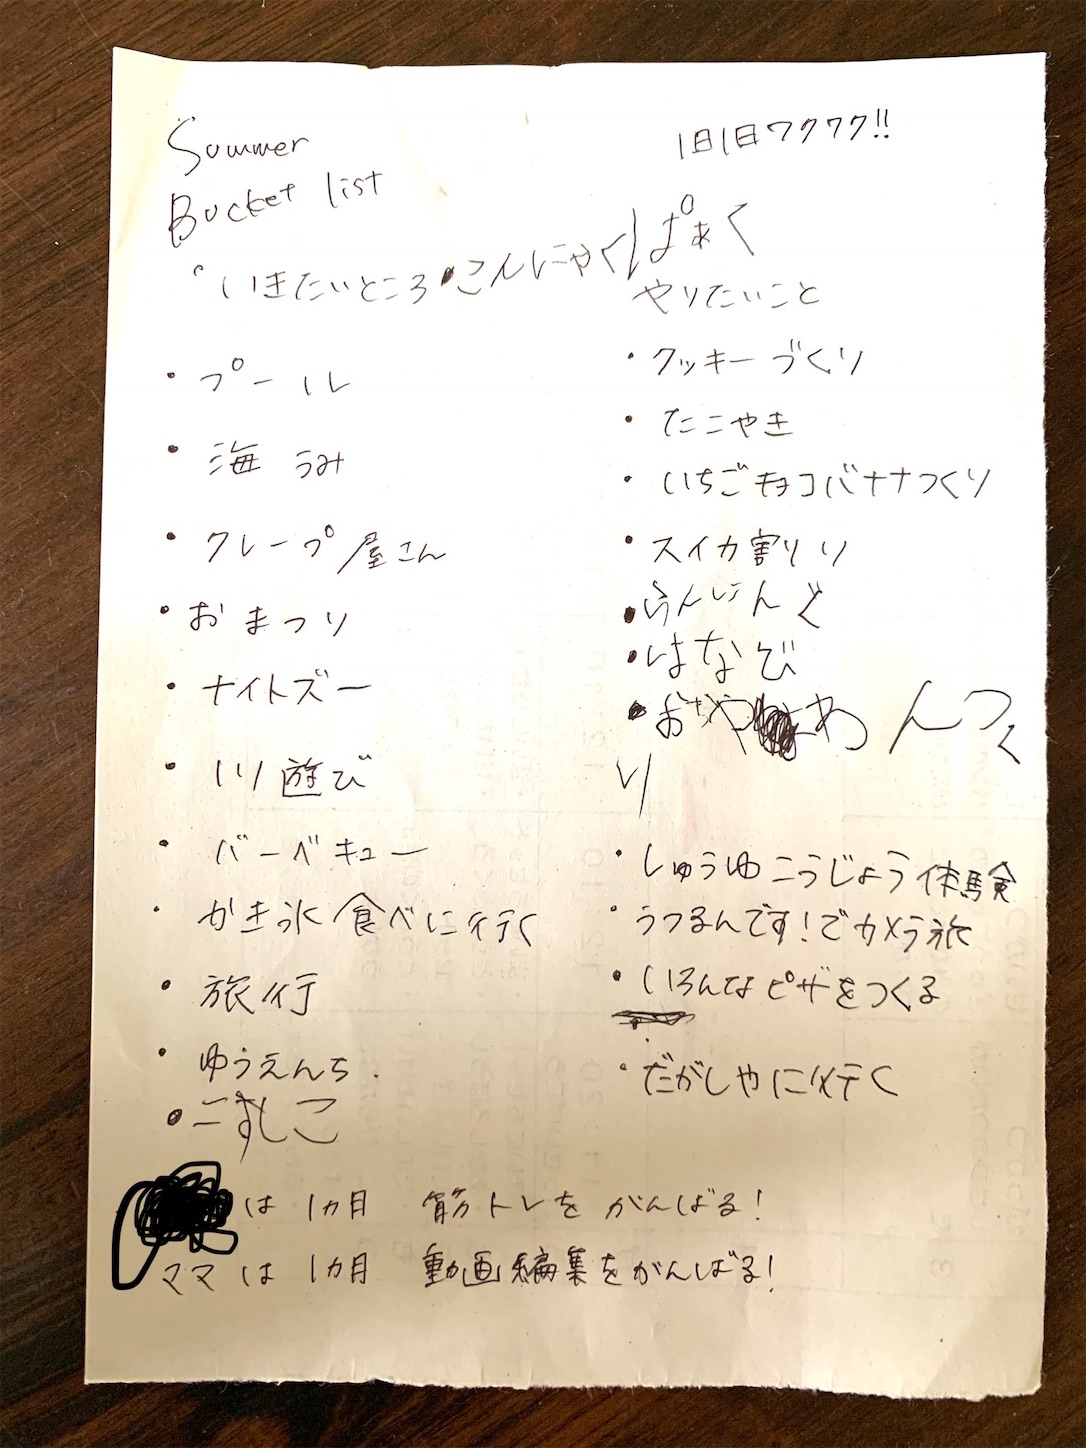 Summer
Bucket list
1日1日ワクワク!!
・いきたいところ
・こんにゃくぱぁく
・プール
・海 うみ
・クレープ屋さん
・おまつり
・ナイトズー
・川遊び
・バーベキュー
・かき氷食べに行く
・旅行
・ゆうえんち.
やりたいこと
・クッキーづくり
・たこやき
・いちごチョコバナナつくり
・スイカ割り
・はなび
・しゅうゆこうじょう体験
・うつるんです!でカメラ旅
・いろんなピザをつくる
・だがしやに行く
は 1ヵ月 筋トレを がんばる!
ママ は 1ヵ月 動画編集をがんばる!